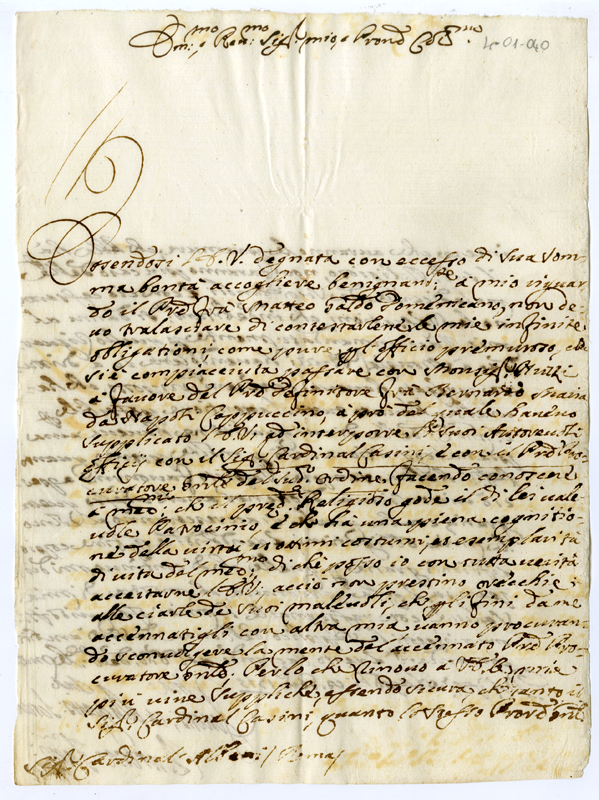 Em.mo e Rev.mo Sig.r mio, e Pron.e Col.mo
4-01-040
Essendosi l'E.V. degnata con eccesso di sua som-
ma bontà accogliere benignam.te a mio riguar-
do il Prd Frà Matteo Domenicano, non de-
vo tralasciare di contestarlene le mie infinite
obligationi, come pure gl'officio premuroso, che
si è compiaciuta passare con Monsig.r Nutii
à favore del Prd definitore Frà Bernardo Maria
da Napoli Cappuccino, a prò del quale havevo
supplicato l'E.V. ad interporre li suoi Autorevoli
officij con il Sig.r Cardinal Casini, e con il Prd Pro-
curatore Gnle del sud.o ordine, facendo conoscere
à med.mi, che il pred.o Religioso gode il di lei vale-
vole Patrocinio, e che hà una piena cognitio-
ne della virtù, et ottimi costumi, et esemplarità
di vita del med.mo, di che posso io con tutta verità
accertarne l'E.V., acciò non prestino orecchie
alle ciarle de suoi malevoli, che per li fini da me
accennatigli con altra mia vanno procuran-
do sconvolgere la mente del accennato Prd Pro-
curatore Gnle. Perlo che rinovo à V.E. le mie
più vive suppliche, essendo sicura che tanto il
Sig.r Cardinal Casini, quanto lo stesso Procur.e Gnle
Sig.r Cardinal Albani / Roma /